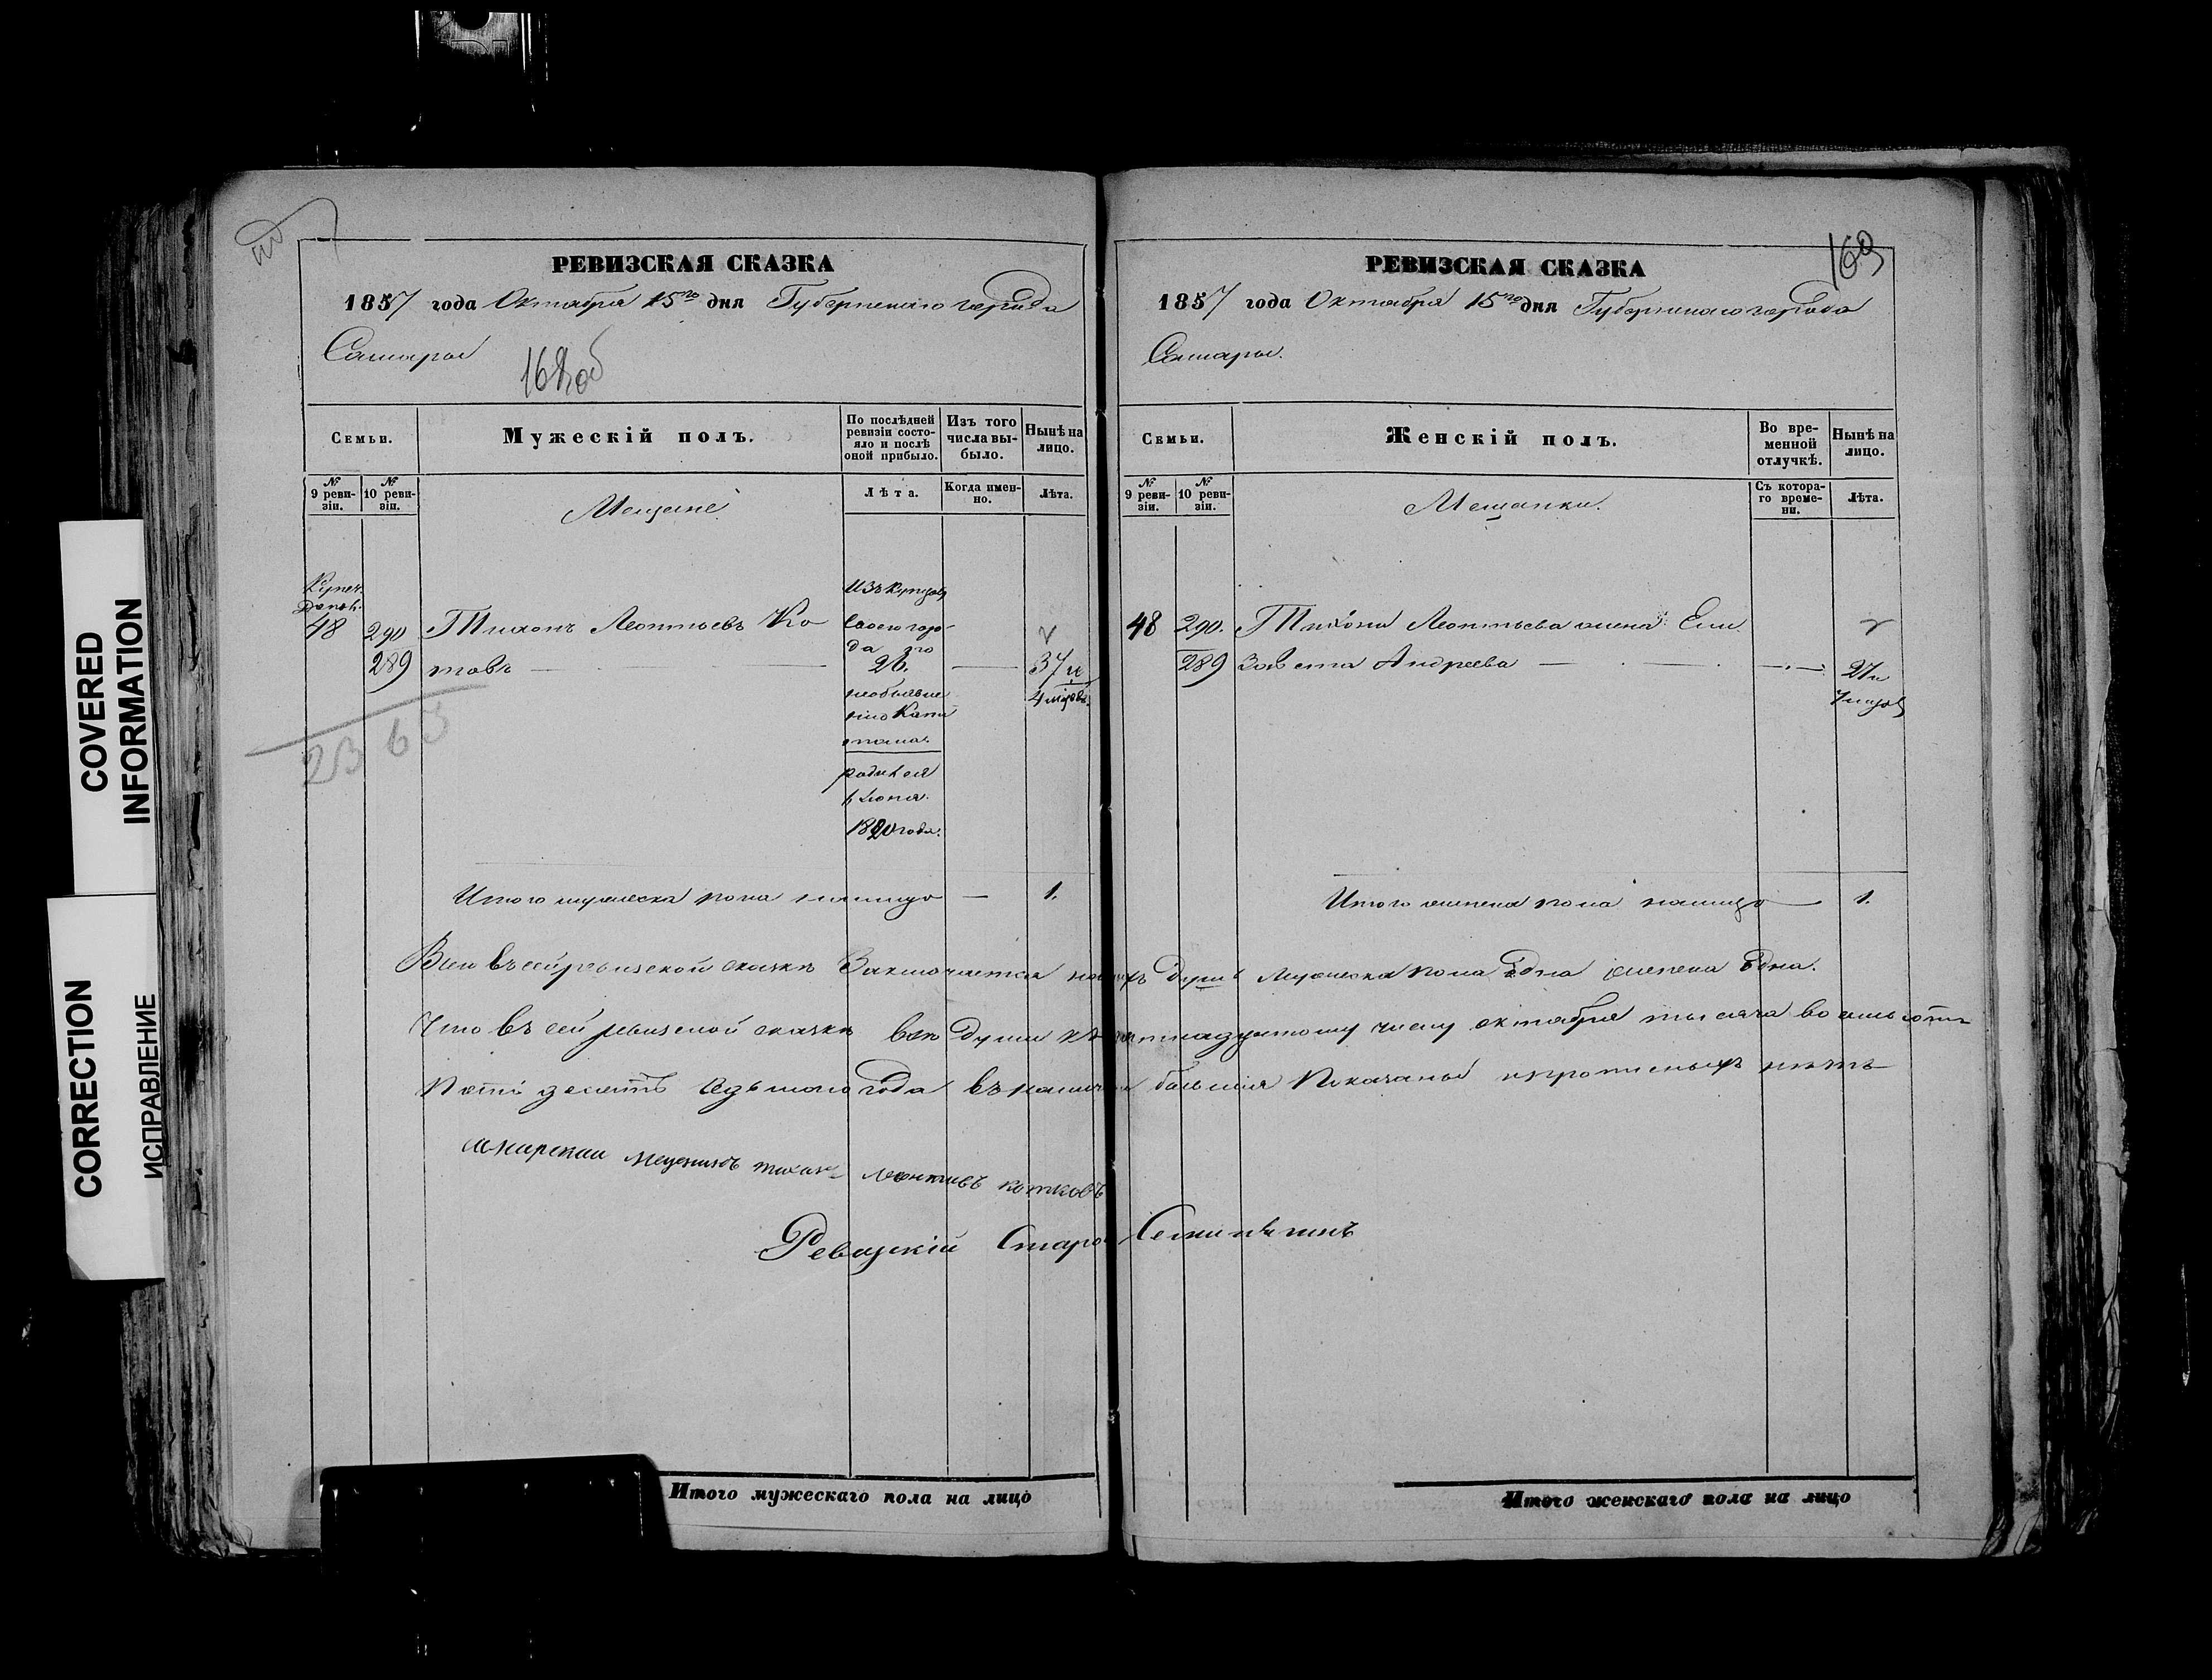 РЕВИЗСКАЯ СКАЗКА
1857 года Октября 15го дня Губернскаго города
Самары
168об
Семьи.
Мужескій полъ.
По послѣдней ревизіи состо-
яло и послѣ
оной прибыло.
Изъ того
числа вы-
было.
Нынѣ на
лицо.
№ 9 реви-
зіи.
№ 10 реви-
зіи.
Мещане
Лѣта.
Когда имен-
но.
Лѣта.
Купеч.
48
290
289
Тихонъ Леонтьевъ Ко
товъ
Изъ купцовъ
своего горо-
да
26.
необъявле
нію Капи
тала.
родился
Іюня
1820 года.
37 и
4 мѣсяц.
2363
Итого мужеска пола налицо — 1.
РЕВИЗСКАЯ СКАЗКА
169
1857 года Октября 15го дня Губернскаго города
Самары.
Семьи.
Женскій полъ.
Во вре-
менной
отлучкѣ.
Нынѣ на
лицо.
№ 9 реви-
зіи.
№ 10 реви-
зіи.
Мещанки.
Съ котора-
го време-
ни.
Лѣта.
48
290.
289
Тихона Леонтьева жена Ели
завета Андреева
27 и
7 мѣсяц
Итого женска пола налицо — 1.
Всего въ сей ревизской сказкѣ Заключается душъ мужеска пола Одна женска Одна.
Что въ сей ревизской сказкѣ всѣ души къ пятнадцатому числу октября тысяча восемьсотъ
Пятьдесятъ Седьмого года въ наличіи бывшія Показаны и прописныхъ нѣтъ
мещанинъ тихонъ леонтивъ котковъ
Ревизскій Староста
Итого мужескаго пола на лицо
Итого женскаго пола на лицо
COVERED
INFORMATION
CORRECTION
ИСПРАВЛЕНИЕ